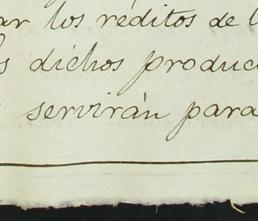 ar los réditos de l
s dichos produc
servirán para